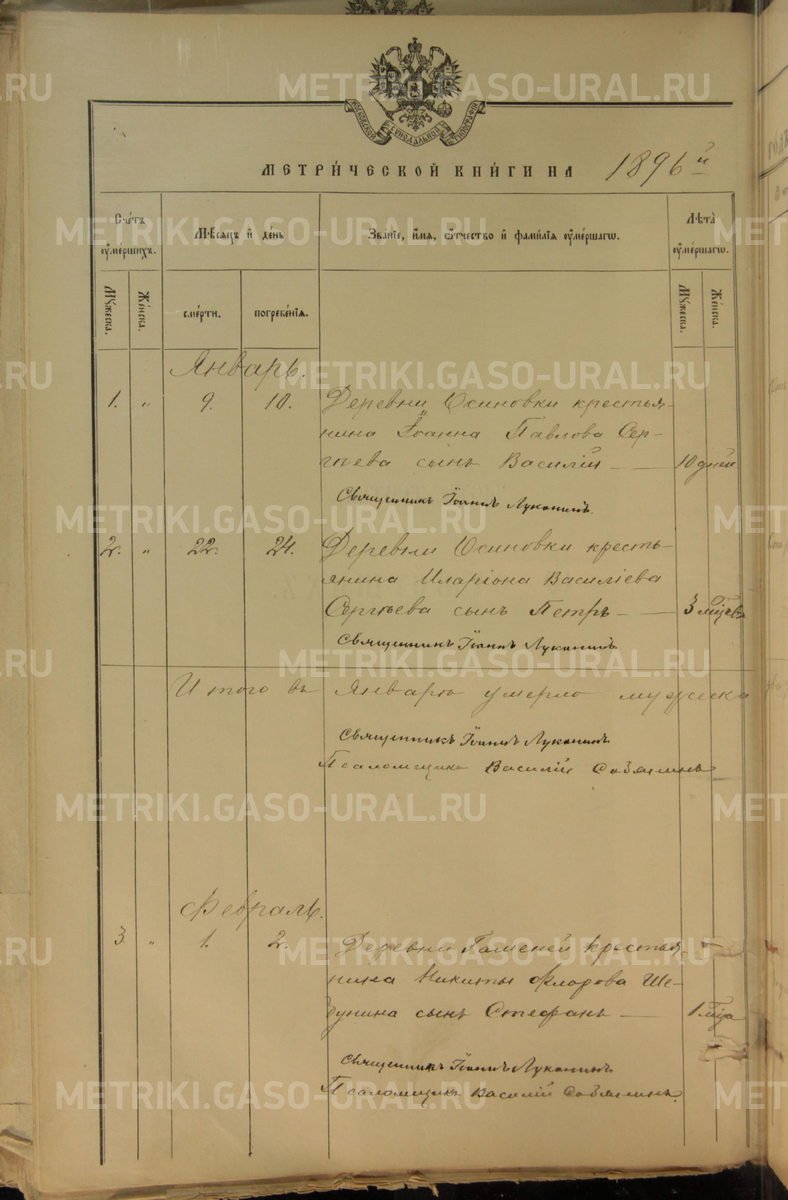 МОСКОВСКОЙ СѴНОДАЛЬНОЙ ТѴПОГРАФІИ
МЕТРИ́ЧЕСКОЙ КНИ́ГИ НА 1896 й
Сче́тъ оу҆ме́ршихъ.
Мѣсяцъ и҆ де́нь
Зва́нїе, и҆́мя, ѻ҆́тчество и҆ фами́лїя оу҆ме́ршагѡ.
Лѣ́та оу҆ме́ршагѡ.
Му́жеска.
Же́нска.
сме́рти.
погребе́нїя.
Му́жеска.
Же́нска.
Январь.
1. " 9. 10. Деревни Осиновки крестья-
нина Іоанна Павлова Сер-
гѣева сынъ Василій — 10 дней
Священникъ Іоаннъ Луканинъ.
2. " 22. 24. Деревни Осиновки кресть-
янина Иларіона Василіева
Сергѣева сынъ Петръ — 3 мѣсяц.
Священникъ Іоаннъ Луканинъ
Итого въ Январѣ умерло мужеска
Священникъ Іоаннъ Луканинъ
Псаломщикъ Василій Собянинъ
Февраль.
3. " 1. 2. Деревни крестья-
нина Никиты Флорова Ше-
бунина сынъ Стефанъ — 1 мѣся.
Священникъ Іоаннъ Луканинъ
Псаломщикъ Василій Собянинъ.
METRIKI.GASO-URAL.RU